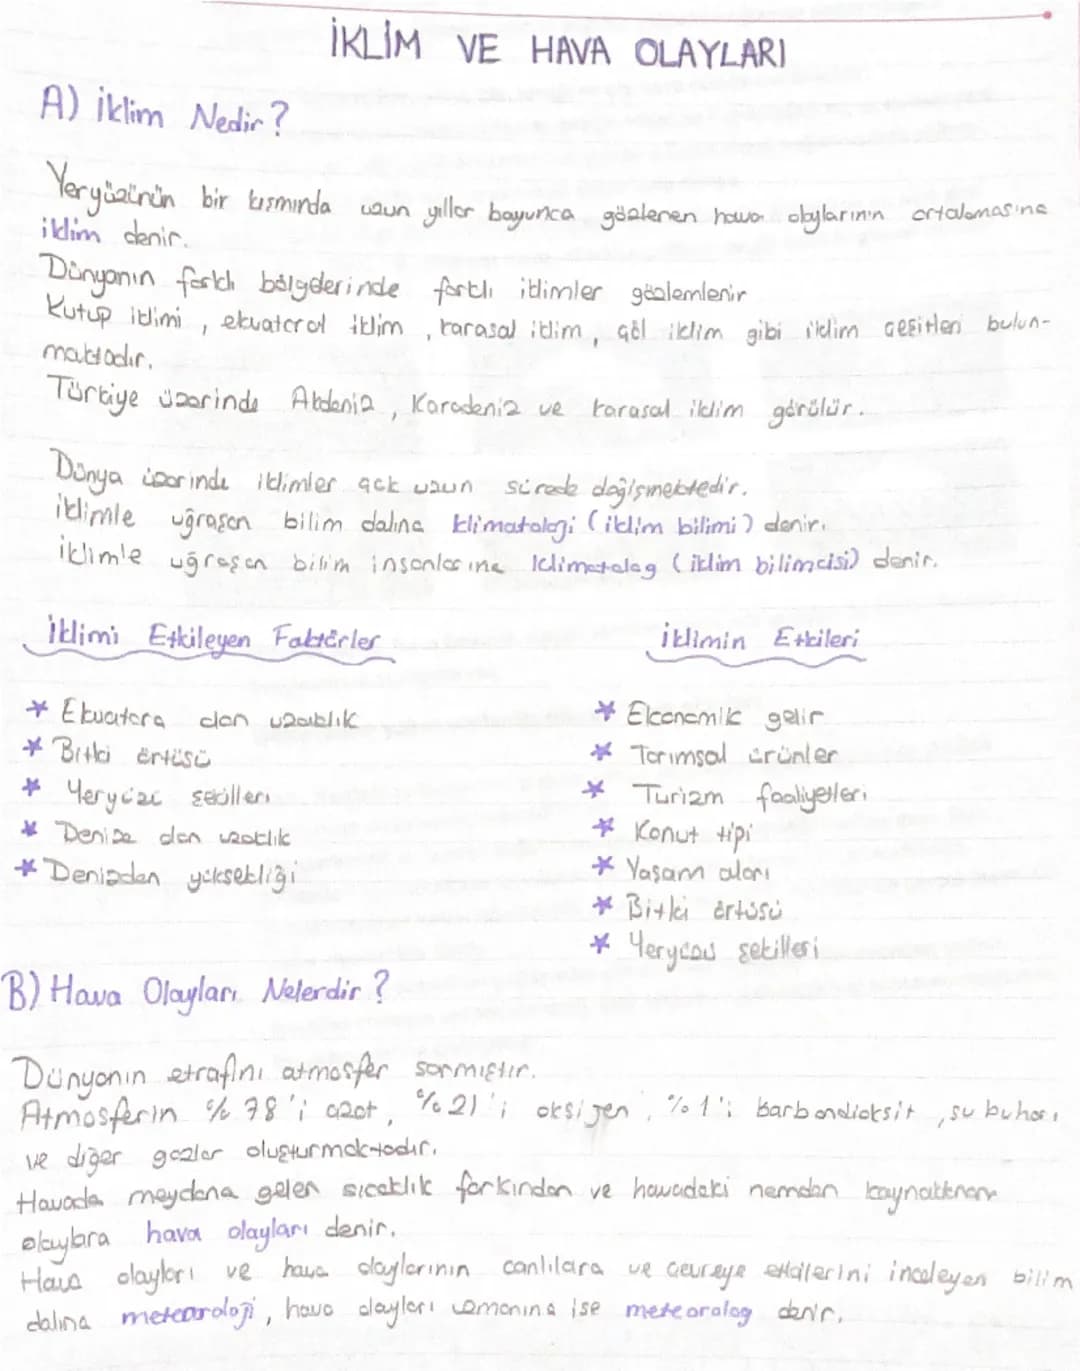 İKLİM VE HAVA OLAYLARI
A) İklim Nedir?
Yeryüzünün bir kısmında uzun yıllar boyunca gözlenen hava olaylarının ortalamasına
iklim denir.
Dünyanın farklı bölgelerinde farklı iklimler gözlemlenir
Kutup iklimi, ekvatoral iklim, karasal iklim, çöl iklim gibi iklim çeşitleri bulun-
maktadır.
Türkiye üzerinde Akdeniz, Karadeniz ve karasal iklim görülür.
Dünya üzerinde iklimler çok uzun sürede değişmektedir.
iklimle uğraşan bilim dalına klimatoloji (iklim bilimi) denir.
iklimle uğraşan bilim insanlarına klimatolog (iklim bilimcisi) denir.
İklimi Etkileyen Faktörler
* Ekvatora dan uzaklık
* Bitki örtüsü
* Yeryüzü şekilleri
* Denize dan uzaklık
* Denizden yüksekliği
iklimin Etkileri
* Ekonomik gelir
* Tarımsal ürünler
* Turizm faaliyetleri
* Konut tipi
* Yaşam alanı
* Bitki örtüsü
* Yeryüzü şekilleri
B) Hava Olayları Nelerdir?
Dünyanın etrafını atmosfer sarmıştır.
Atmosferin % 78'i azot, % 21'i oksijen, %1'i karbondioksit, su buharı
ve diğer gazlar oluşturmaktadır.
Havada meydana gelen sıcaklık farkından ve havadaki nemden kaynaklanan
olaylara hava olayları denir.
Hava olayları ve hava olaylarının canlılara ve çevreye etkilerini inceleyen bilim
dalına meteoroloji, hava olayları uzmanına ise meteorolog denir.